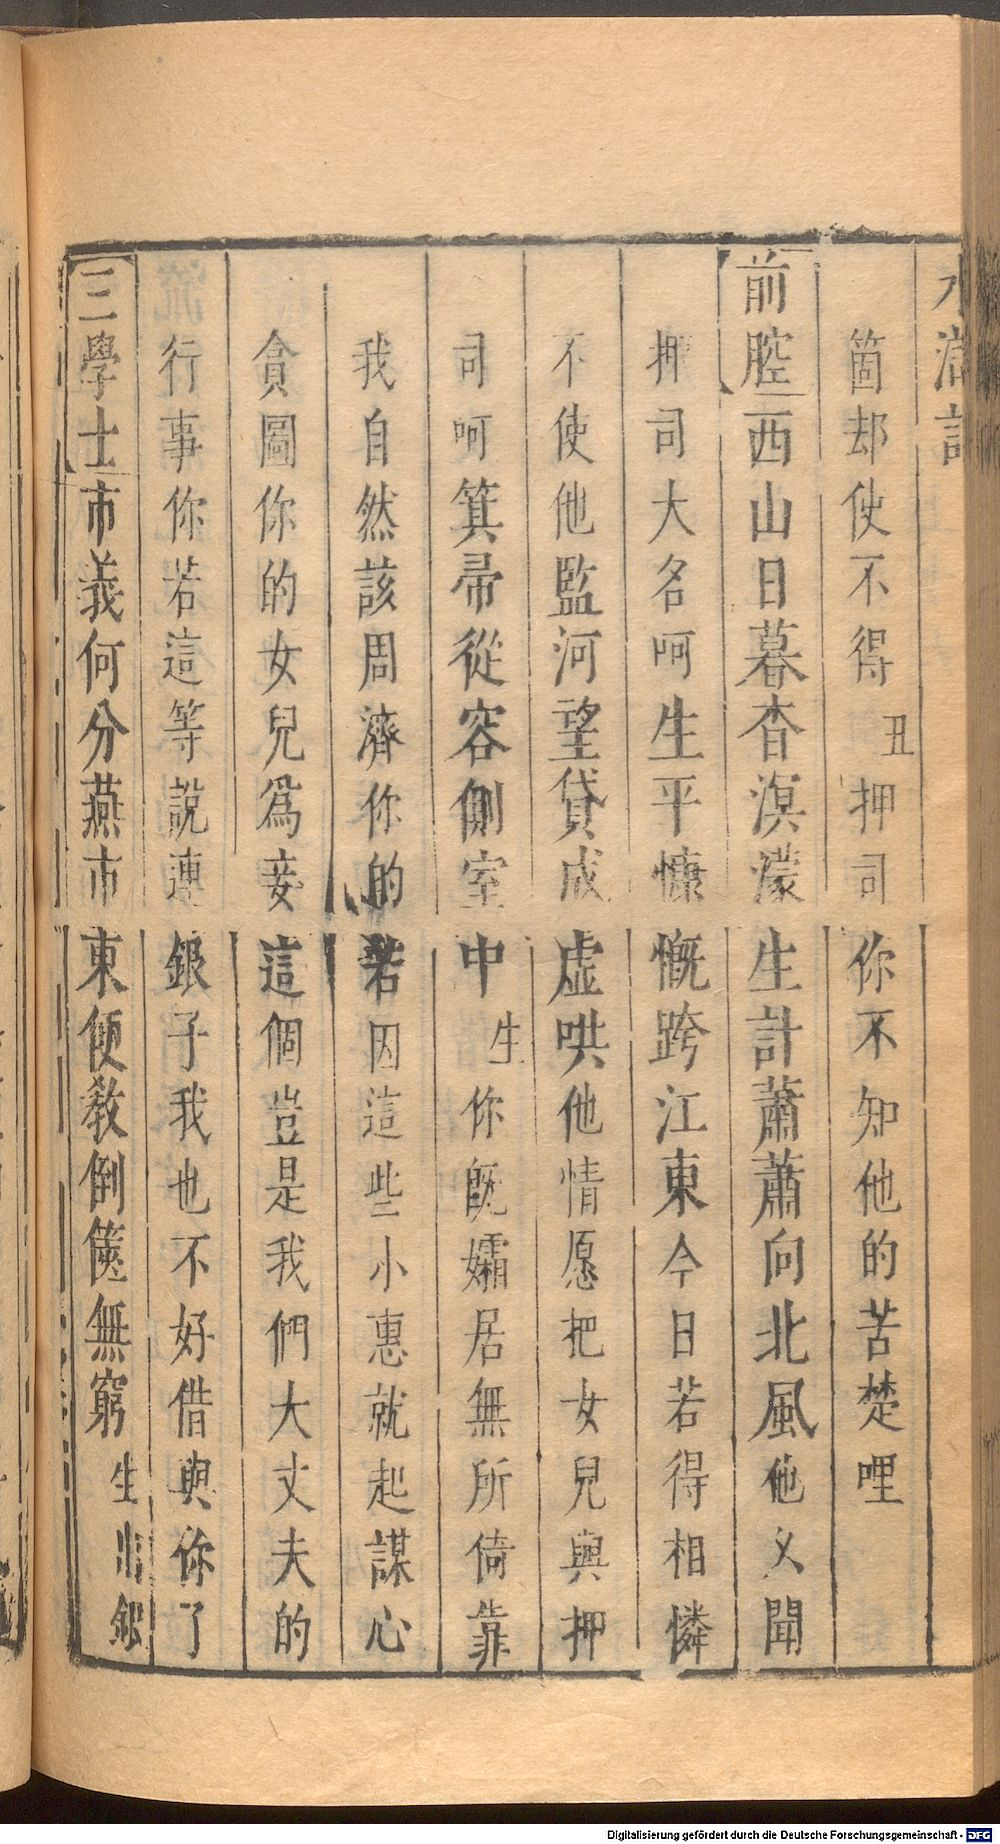 水滸記
箇却使不得 丑 押司你不知他的苦楚哩
前腔 西山日暮杳溟濛生計蕭蕭向北風他又聞
押司大名呵生平慷慨跨江東今日若得相憐
不使他監河望貸成虛哄他情愿把女兒與押
司呵箕帚從容側室中 生 你旣孀居無所倚靠
我自然該周濟你的若因這些小惠就起謀心
貪圖你的女兒爲妾這個豈是我們大丈夫的
行事你若這等說連銀子我也不好借與你了
三學士 市義何分燕市東便敎倒篋無窮 生出銀
Digitalisierung gefördert durch die Deutsche Forschungsgemeinschaft - DFG